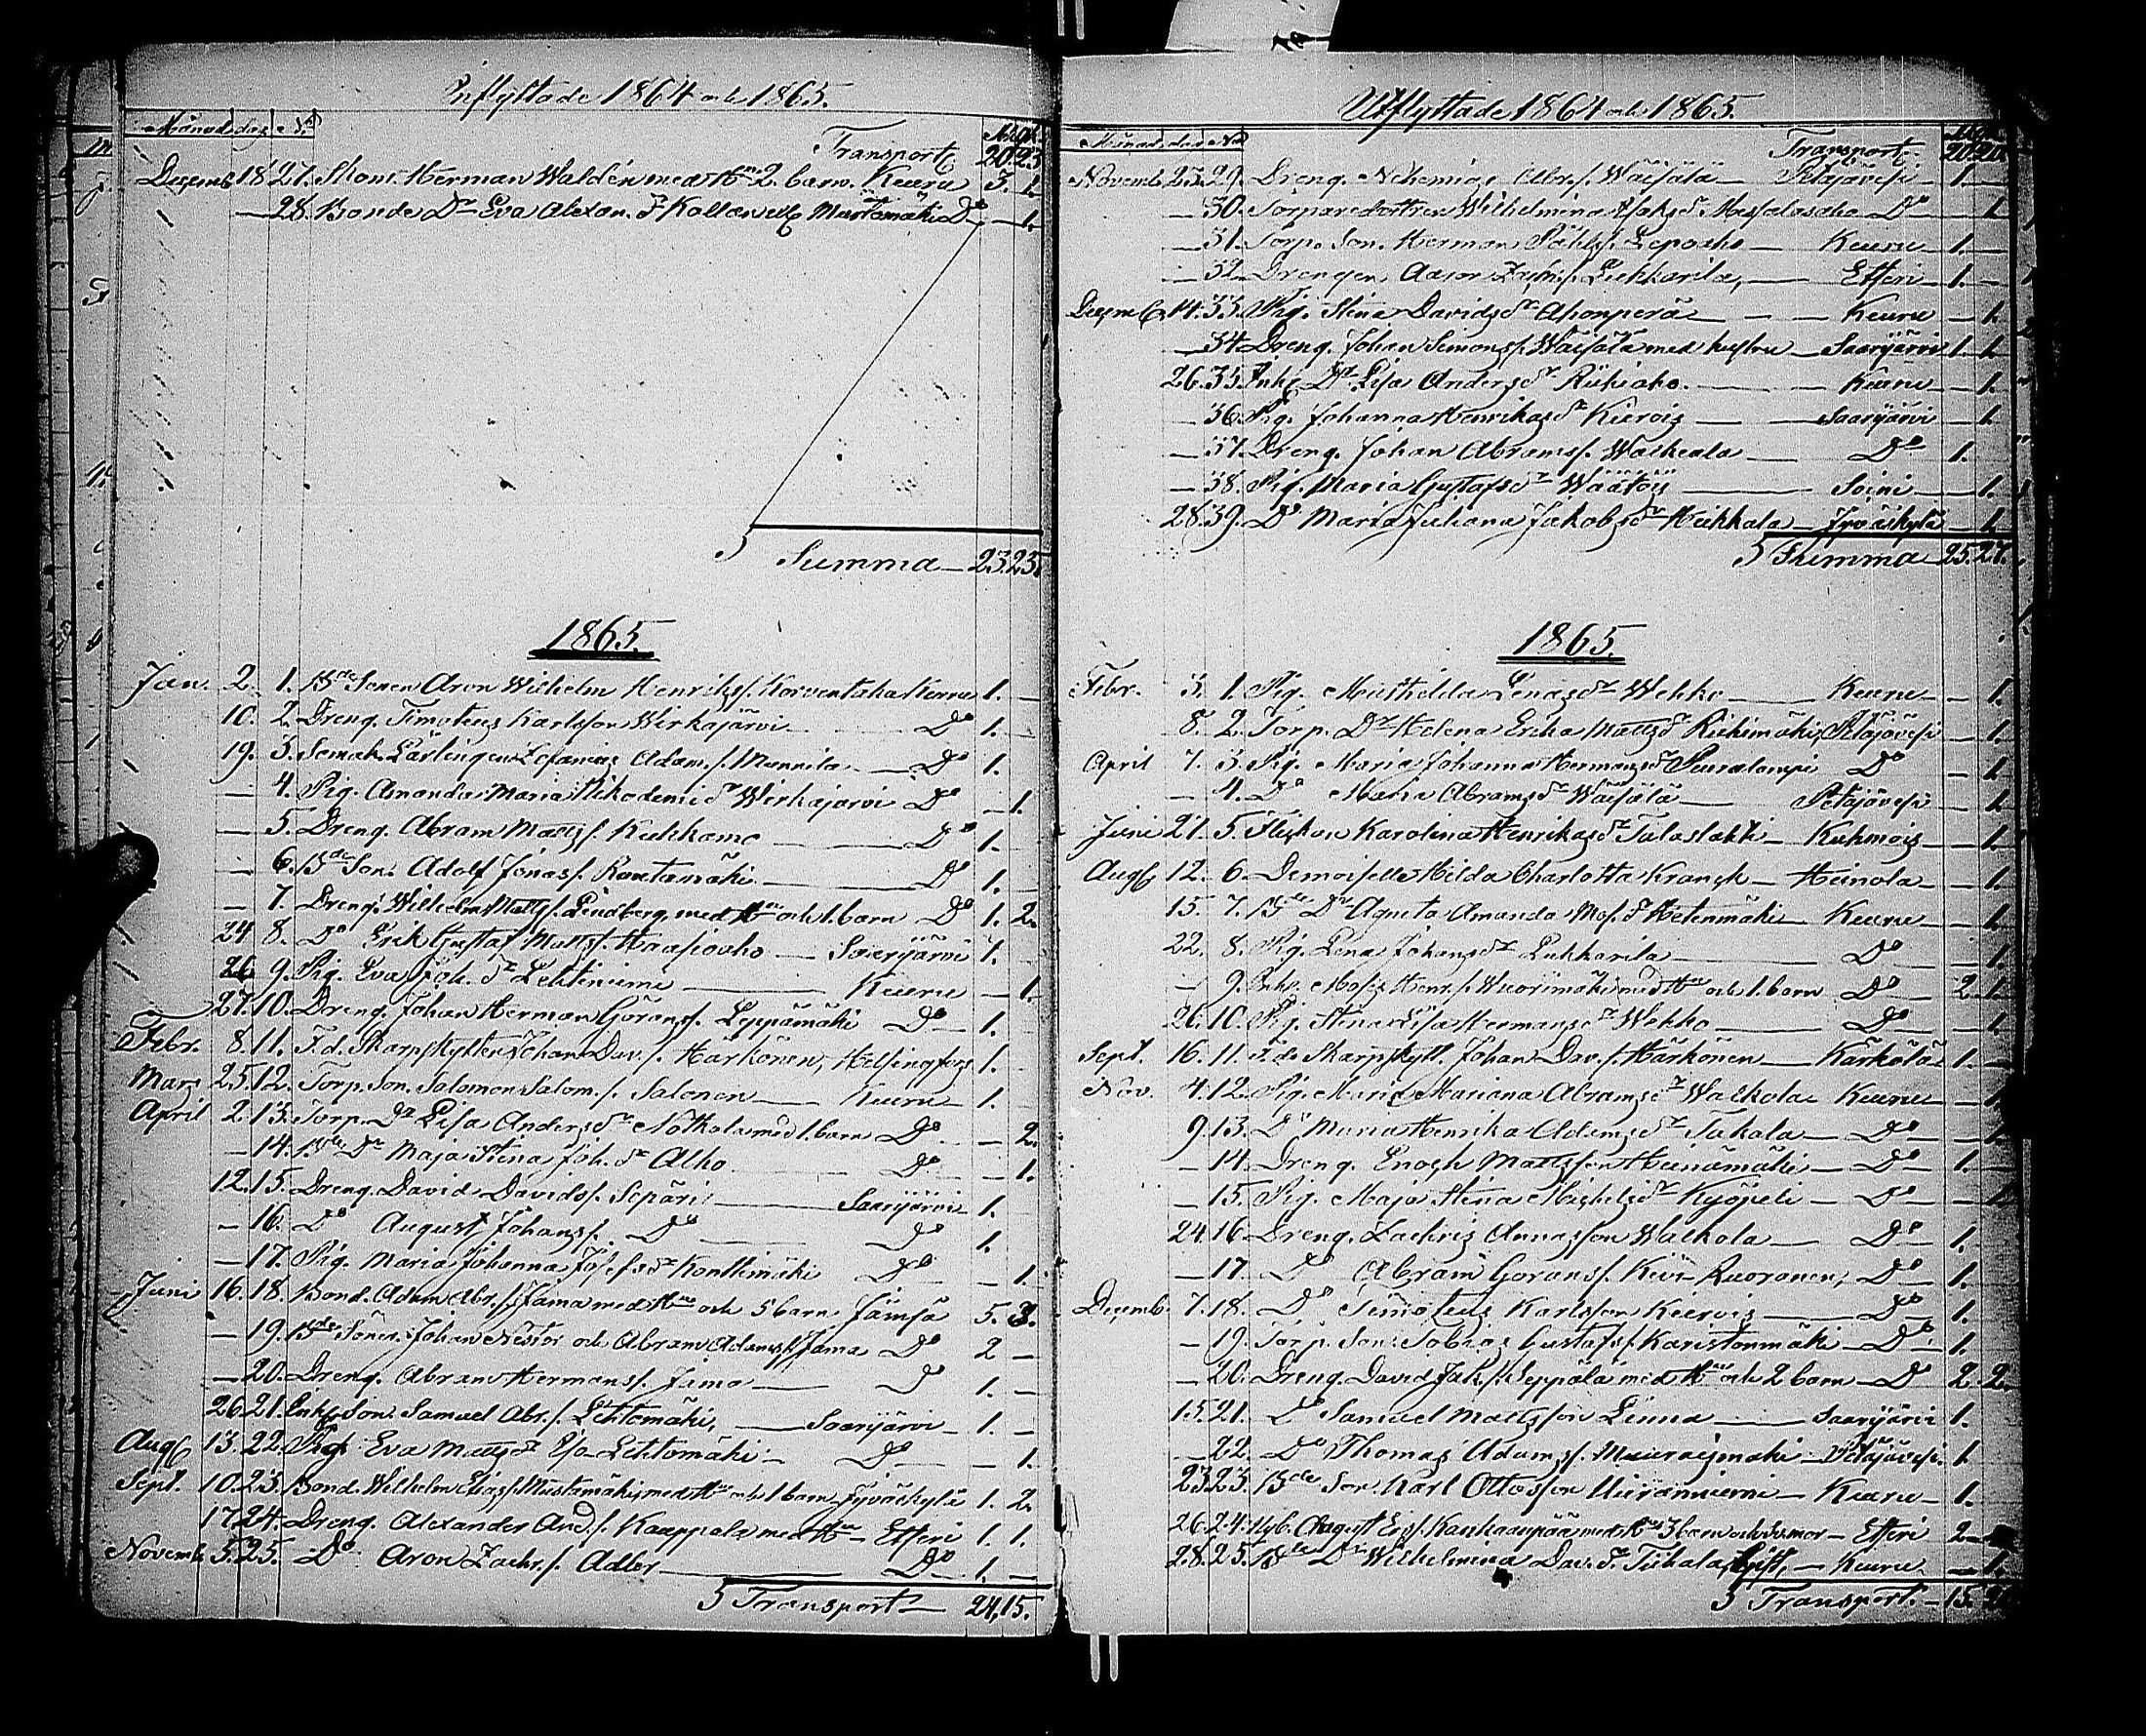 Inflyttade 1864 och 1865.
Månad dag No
Transport 20. 23
Decemb. 18. 27. Skom. Herman Waldén med Hu 2. barn. Keuru 3. 1.
— 28. Bonde Dr Eva Alexan. dr Mustamäki Do — 1.
Summa — 23. 25.
1865.
Jan. 2. 1. Bde Sonen Aron Wilhelm Henrikss. Korventaka Keuru 1. —
10. 2. Dreng. Timoteus Karlsson Wirkajärvi Do 1.
19. 3. Lärlingen Zefanias Adam. s. Mannila — Do 1.
— 4. Pig. Amanda Maria Nikodemi dr Wirkajärvi Do — 1.
— 5. Dreng. Abram Matts s. Kukkomo — Do 1.
— 6. Bde Son. Adolf Jonas s. Rantamäki — Do 1.
— 7. Dreng. Wilhelm Matts s. Lindberg, med Hu och 1. barn Do 1. 2.
24 8. Do Erik Gustaf Mattss. Haasioaho — Saarijärvi 1.
26 9. Pig. Eva Joh. dr Lehtiniemi — Keuru — 1.
27. 10. Dreng. Johan Herman Göranss. Leppämäki Do — 1.
Febr. 8. 11. F.d. Skarpskytten Johan Dav. s. Härkönen, Helsingfors 1.
Mars 25. 12. Torp. son. Salomon Salom. s. Salonen — Keuru — 1.
April 2. 13. Torp. Dr Lisa Anders dr Notkola med 1. barn Do — 2.
— 14. Bde Dr Maja Stina Joh. dr Alho — Do — 1.
12. 15. Dreng. David Davids s. Sepäri — Saarijärvi 1.
— 16. Do August Johans s. Do — Do 1.
— 17. Pig. Maria Johanna Josefs dr Konttimäki Do — 1.
Juni 16. 18. Bond. Adam Abr. s. Jama med Hu och 5 barn, Jämsä 5. 3.
— 19. Bde Söner. Johan Nestor och Abram Adams s. Jama Do 2 —
— 20. Dreng. Abram Hermans s. Jama — D 1. —
26. 21. Inh. Son. Samuel Abr. s. Lehtomäki, — Saarijärvi 1. —
Aug. 13. 22. Pig. Eva Matts dr Lehtomäki — Do — 1.
Sept. 10. 23. Bond. Wilhelm Elias s. Mustamäki, med Hu och 1 barn Jyväskylä 1. 2.
17. 24. Dreng. Alexander And. s. Kaappola med Hu — Etseri 1. 1.
Novemb. 5. 25. Do Aron Zachr. s. Adler — Do 1. —
Transport — 24, 15.
Utflyttade 1864 och 1865.
Månad dag No
Transport 20. 20
Novemb. 27. 29. Dreng. Nehemias Abr. s. Wäisälä — Petäjävesi — 1. —
— 30. Torparedottren Wilhelmina Do 1
— 31. Torp. Son. Herman Leposho — Keuru — 1.
— 32. Drengen Aaron Zachr. s. Lukkarila, — Etseri — 1. —
Decemb. 14. 33. Pig. Stina Davids dr Ahonperä — Keuru — 1.
— 34. Dreng. Johan Simons s. Wäisälä med hustru — Saarijärvi 1. 1.
26. 35. Inh. Dr Lisa Anders dr Riihiaho. — Keuru — 1.
— 36. Pig. Johanna Henrikas dr Kiervis — Saarijärvi — 1.
— 37. Dreng. Johan Abrams s. Walkeala — Do 1.
— 38. Pig. Maria Gustafs dr Wäätöis — Soini — 1.
28. 39. Do Maria Juliana Jakobs dr Heikkala — Jyväskylä — 1
Summa 25. 27.
1865.
Febr. 3. 1. Pig. Mathilda Lenas dr Wehko — Keuru — 1.
8. 2. Torp. Dr Helena Erika Matts dr Riihimäki, Petäjävesi — 1.
April 7. 3. Pig. Maria Johanna Hermans dr Peuralampi Do — 1
— 4. Do Maria Abrams dr Wäisälä — Petäjävesi — 1.
Juni 21. 5. Flickan Karolina Henrikas dr Talaslahti — Kuhmois — 1.
Aug. 12. 6. Demoiselle Hilda Charlotta Kranck — Heinola — 1.
15. 7. Bde Dr Agneta Amanda Mos. dr Hetenmäki — Keuru — 1.
22. 8. Pig. Lena Johans dr Lukkarila — Do — 1.
— 9. Inh. Moses Henr. s. Wuorimäki med Hu och 1. barn Do — 2. 1.
26. 10. Pig. Stina Lisa Hermans dr Wehko — Do — 1.
Sept. 16. 11. F.d. Skarpskytt. Johan Dav. s. Härkönen — Kärkölä 1. —
Nov. 4. 12. Pig. Maria Mariana Abrams dr Walkola Keuru — 1
9. 13. Do Maria Henrika Adams dr Takala — Do — 1.
— 14. Dreng. Enoch Mattsson Heinämäki — Do 1. —
— 15. Pig. Maja Stina Michels dr Kyöpeli — Do — 1
24. 16. Dreng. Zachris Annasson Walkola — Do 1.
— 17. Do Abram Görans s. Kivi Ruoranen, Do 1.
Decemb. 7. 18. Do Timoteus Karlsson Kiervis — Do 1.
— 19. Torp. Son. Tobias Gustafs s. Karistonmäki — Do 1.
— 20. Dreng. David Jak. s. Seppälä med Hu och 2 barn — D 2. 2.
15. 21. Do Samuel Mattsson Linna — Saarijärvi 1.
— 22. Do Thomas Adams s. Petäjävesi. 1
23. 23. Bde Son. Karl Ottosson Niiranniemi — Keuru — 1.
26. 24. Nyb. August Er. s. Kankaanpää med Hu 3 barn och — Etseri 2
28. 25. Bde Dr Wilhelmina Dav. dr Tiihala, Gift, — Keuru — 1.
Transport. — 15.